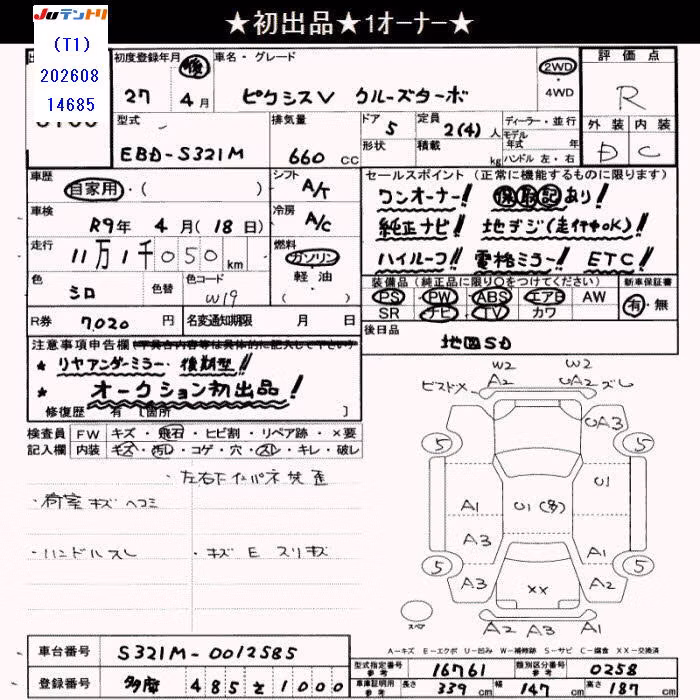 ★初出品★1オーナー★
JUテントリ
(T1)
202608
14685
初度登録年月
27
後
4月
車名・グレード
ピクシスV クルーズターボ
2WD・4WD
評価点
R
外装 内装
D C
型式
EBD-S321M
排気量
660 CC
ドア 5
形状
定員 2(4)人
積載 kg
ディーラー・並行
モデル
年式 年
ハンドル 左・右
車歴
自家用・( )
シフト
A/T
車検
R9年 4月(18日)
冷房
A/C
走行
11万1千050km
燃料
ガソリン
軽油・
( )
色
シロ
色替
色コード
W19
R券 7,020 円
名変通知期限 月 日
セールスポイント(正常に機能するものに限ります)
ワンオーナー!! 保取記あり!
純正ナビ!! 地デジ(走行中OK)!!
ハイルーフ!! 電格ミラー!! ETC!
装備品(純正品に限り○をつけてください)
PS・PW・ABS・エアB・AW
SR ナビ・TV カワ
新車保証書
有・無
後日品
地図SD
注意事項申告欄(不具合内容等は具体的に記入して下さい)
★リヤアンダーミラー 後期型!!
★オークション初出品!
修復歴 有 [箇所 ]
検査員 FW キズ・飛石・ヒビ割・リペア跡・×要
記入欄 内装 キズ・汚レ・コゲ・穴・スレ・キレ・破レ
・左右下インパネ
・荷室キズ ヘコミ
・ハンドルスレ
・キズ E スリキズ
W2 W2
ビスドメ A2 UA2 ズレ
UA3
5 5
A1 U1(多) U1
A3 A1
5 5
A3 XX A2
スペア
A2 A3 A1
A=キズ E=エクボ U=凹み W=補修跡 S=サビ C=腐食 XX=交換済
車台番号 S321M-0012585
登録番号 多摩 485 を 1000
型式指定番号 参考 16761
類別区分番号 参考 0258
車庫証明用 参考 長さ 339cm 幅 147cm 高さ 187cm